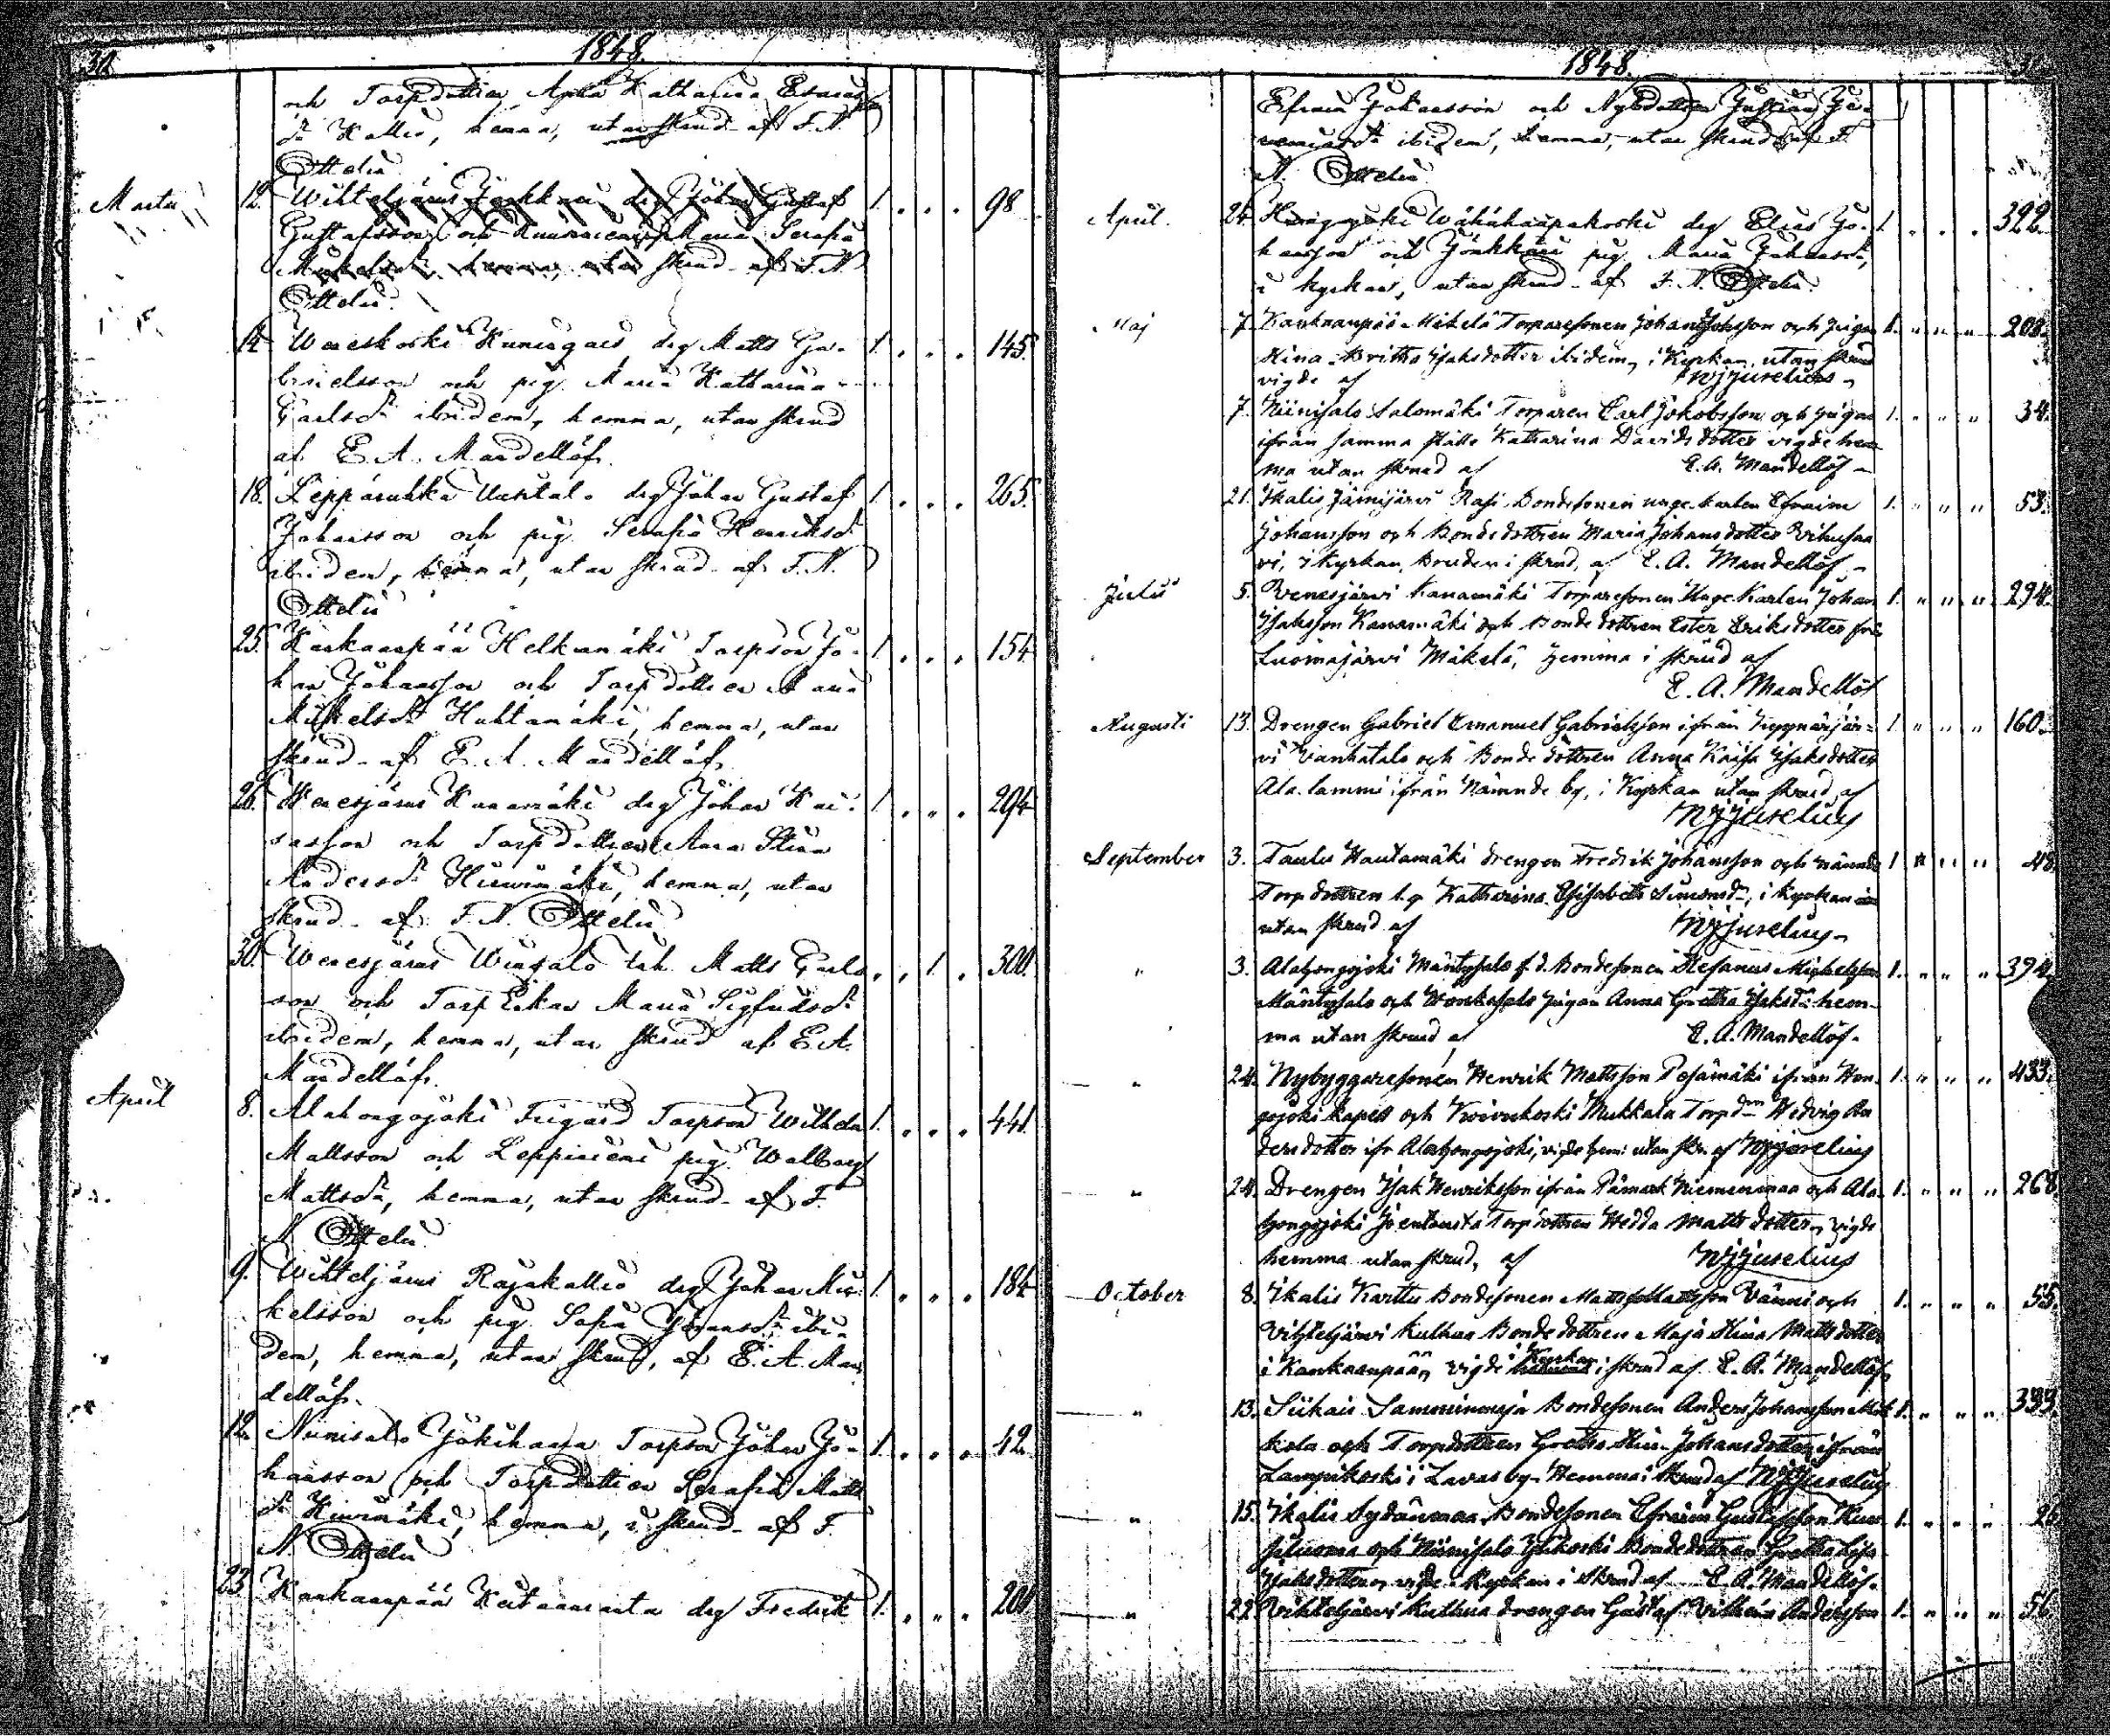 32 1848.
och Torpdottren Anna Katharina
d:r Kallio, hemma, utan skrud af F. N.
Ottelin
Martii 12. Wihteljärvi Jonkkari drg Johan Gustaf 1. 98
Gustafsson och Maria Serafia
hemma, utan skrud af F. N.
Ottelin.
14. Weneskoski Kuningas drg Matts Ga- 1. 145.
brielsson och pig. Maria Katharina
Carlsd:r ibidem, hemma, utan skrud
af E. A. Mandellöf.
18. Leppäruhka Uusitalo drg Johan Gustaf 1. 265.
Johansson och pig. Serafia Henriksd:r
ibidem, hemma, utan skrud af F. N.
Ottelin
25. Kankaanpää Helkamäki Torpson Jo- 1. 154
han Johansson och Torpdottren Maria
Mickelsd:r Huhtamäki, hemma, utan
skrud af E. A. Mandellöf.
26. Wenesjärvi Kanamäki drg Johan Kui- 1. 294
sasson och Torpdottren Anna Stina
Andersd:r Hiivimäki, hemma, utan
skrud af F. N. Ottelin
30. Wenesjärvi Matts Carls- 1. 300
son och Torp Enkan Maria Sigfridsd:r
ibidem, hemma, utan skrud af E. A.
Mandellöf.
April 8. Alahongojoki Frigård Torpson Wilhelm 1. 441.
Mattsson och Leppiniemi pig. Walborg
Mattsd:r, hemma, utan skrud af F.
N. Ottelin
9. Wihteljärvi Rajakallio drg Johan Mic- 1. 184
kelsson och pig. Sofia Johansd:r ibi-
dem, hemma, utan skrud, af E. A. Man-
dellöf.
12. Niinisalo Jokihaara Torpson Johan Jo- 1. 42
hansson och Torpdottren Serafia Matts
d:r Hiivimäki, hemma, i skrud af F.
N. Ottelin
23. Kankaanpää Keitaanranta drg Fredrik 1. 201
1848.
Efraim Johansson och Nybdottren Justina Je-
remiasd:r ibidem, hemma, utan skrud af F.
N. Ottelin
April. 24. Hongojoki Wähähaapakoski drg Elias Jo- 1. 322.
hansson och Jonkkari pig. Maria Johansd:r,
i kyrkan, utan skrud af F. N. Ottelin.
Maj 7. Kankaanpää Mikelä Torparesonen Johan Johansson och pigan 1. 208.
Stina Britha Isaksdotter ibidem, i Kyrkan utan skrud
vigde af WJJuselius
7. Niinisalo Salomäki Torparen Carl Jakobsson och pigan 1. 34.
ifrån samma ställe Katharina Davidsdotter vigde hem-
ma utan skrud af E. A. Mandellöf
21. Ikalis Jämijärvi Rasi Bondesonen unge karlen Efraim 1. 53.
Johansson och Bondedottren Maria Johansdotter Vihusaa-
ri, i Kyrkan, Bruden i skrud, af E. A. Mandellöf
Julii 5. Venesjärvi Kanamäki Torparesonen Unge Karlen Johan 1. 294.
Isaksson Kanamäki och Bondedottren Ester Eriksdotter frn
Luomajärvi Mäkelä, hemma i skrud af
E. A. Mandellöf
Augusti 13. Drengen Gabriel Emanuel Gabrielsson ifrån 1. 160.
vi Vanhatalo och Bondedottren Anna Kaisa Isaksdotter
Ala-lammi ifrån Nämnde by, i Kyrkan utan skrud, af
WJJuselius
September 3. Taulu Hautamäki drengen Fredrik Johansson och nämnde 1 48.
Torpdottren Katharina Elisabeth Simonsd:r, i kyrkan
utan skrud af WJJuselius
" 3. Alahongojoki Mäntysalo f.d. Bondesonen Stefanus Michelsson 1. 394.
Mäntysalo och Honkasalo pigan Anna Gretha Isaksd:r hem-
ma utan skrud af E. A. Mandellöf.
" 24. Nybyggaresonen Henrik Mattsson Pesämäki ifrån Hon- 1. 433.
gojoki kapell och Koivukoski Mukkala Torpd:ren Hedvig An-
dersdotter ifr Alahongojoki, vigde hem: utan skr. af WJJuselius
" 24. Drengen Isak Henriksson ifrån Påmark Niemenmaa och Ala- 1. 268.
hongojoki Joentausta Torpdottren Hedda Mattsdotter, vigde
hemma utan skrud, af WJJuselius
October 8. Ikalis Karttu Bondesonen Matts Mattsson Vänni och 1. 55.
Vihteljärvi Kuthua Bondedottren Maja Stina Mattsdotter
i Kankaanpää, vigde i Kyrkan i skrud af E. A. Mandellöf,
" 13. Siikais Sammimaja Bondesonen Anders Johansson 1. 339.
kola och Torpdottren Gretha Stina Johansdotter ifrån
Lampikoski i Lavas by. Hemma i skrud af WJJuselius
" 15. Ikalis Sydänmaa Bondesonen Efraim Gustafsson Kuu- 1. 26.
siluoma och Niinisalo Ylikoski Bondedottren Gretha Lisa
Isaksdotter, vigde i Kyrkan i skrud af E. A. Mandellöf.
" 22. Vihteljärvi Kuthua drengen Gustaf Vilhelm Andersson 1. 56.